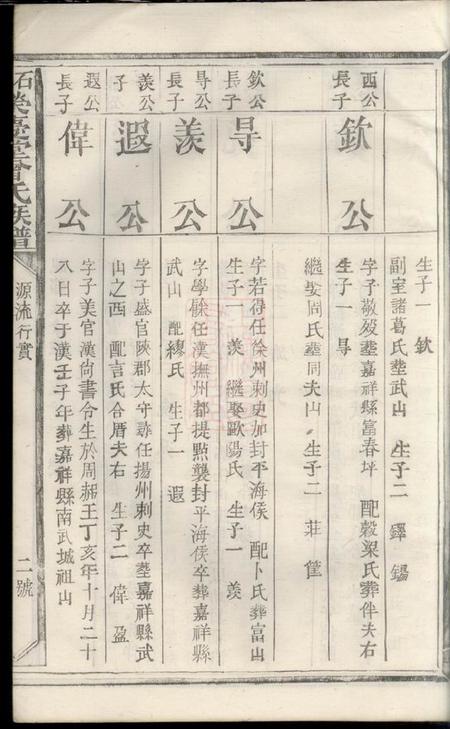 生子一 欽
副室諸葛氏塟武山 生子二 鐸 錫
西公長子
欽公
字子敬歿塟嘉祥縣富春坪 配穀梁氏葬伴夫右
生子一 㝵
繼娶周氏塟同夫山 生子二 莊 篁
欽公長子
㝵公
字若得任徐州刺史加封平海侯 配卜氏葬富山
生子一 羨 繼娶歐陽氏 生子一 羡
㝵公長子
羨公
字學餘任漢撫州都提㸃襲封平海侯卒葬嘉祥縣
武山 配繆氏 生子一 遐
羨公子
遐公
字子盛官陝郡太守尋任揚州刺史卒塟嘉祥縣武
山之西 配言氏合厝夫右 生子二 偉 盈
遐公長子
偉公
字子美官漢尚書令生於周赧王丁亥年十月二十
八日卒于漢壬子年葬嘉祥縣南武城祖山
曾氏族譜
源流行實
二號